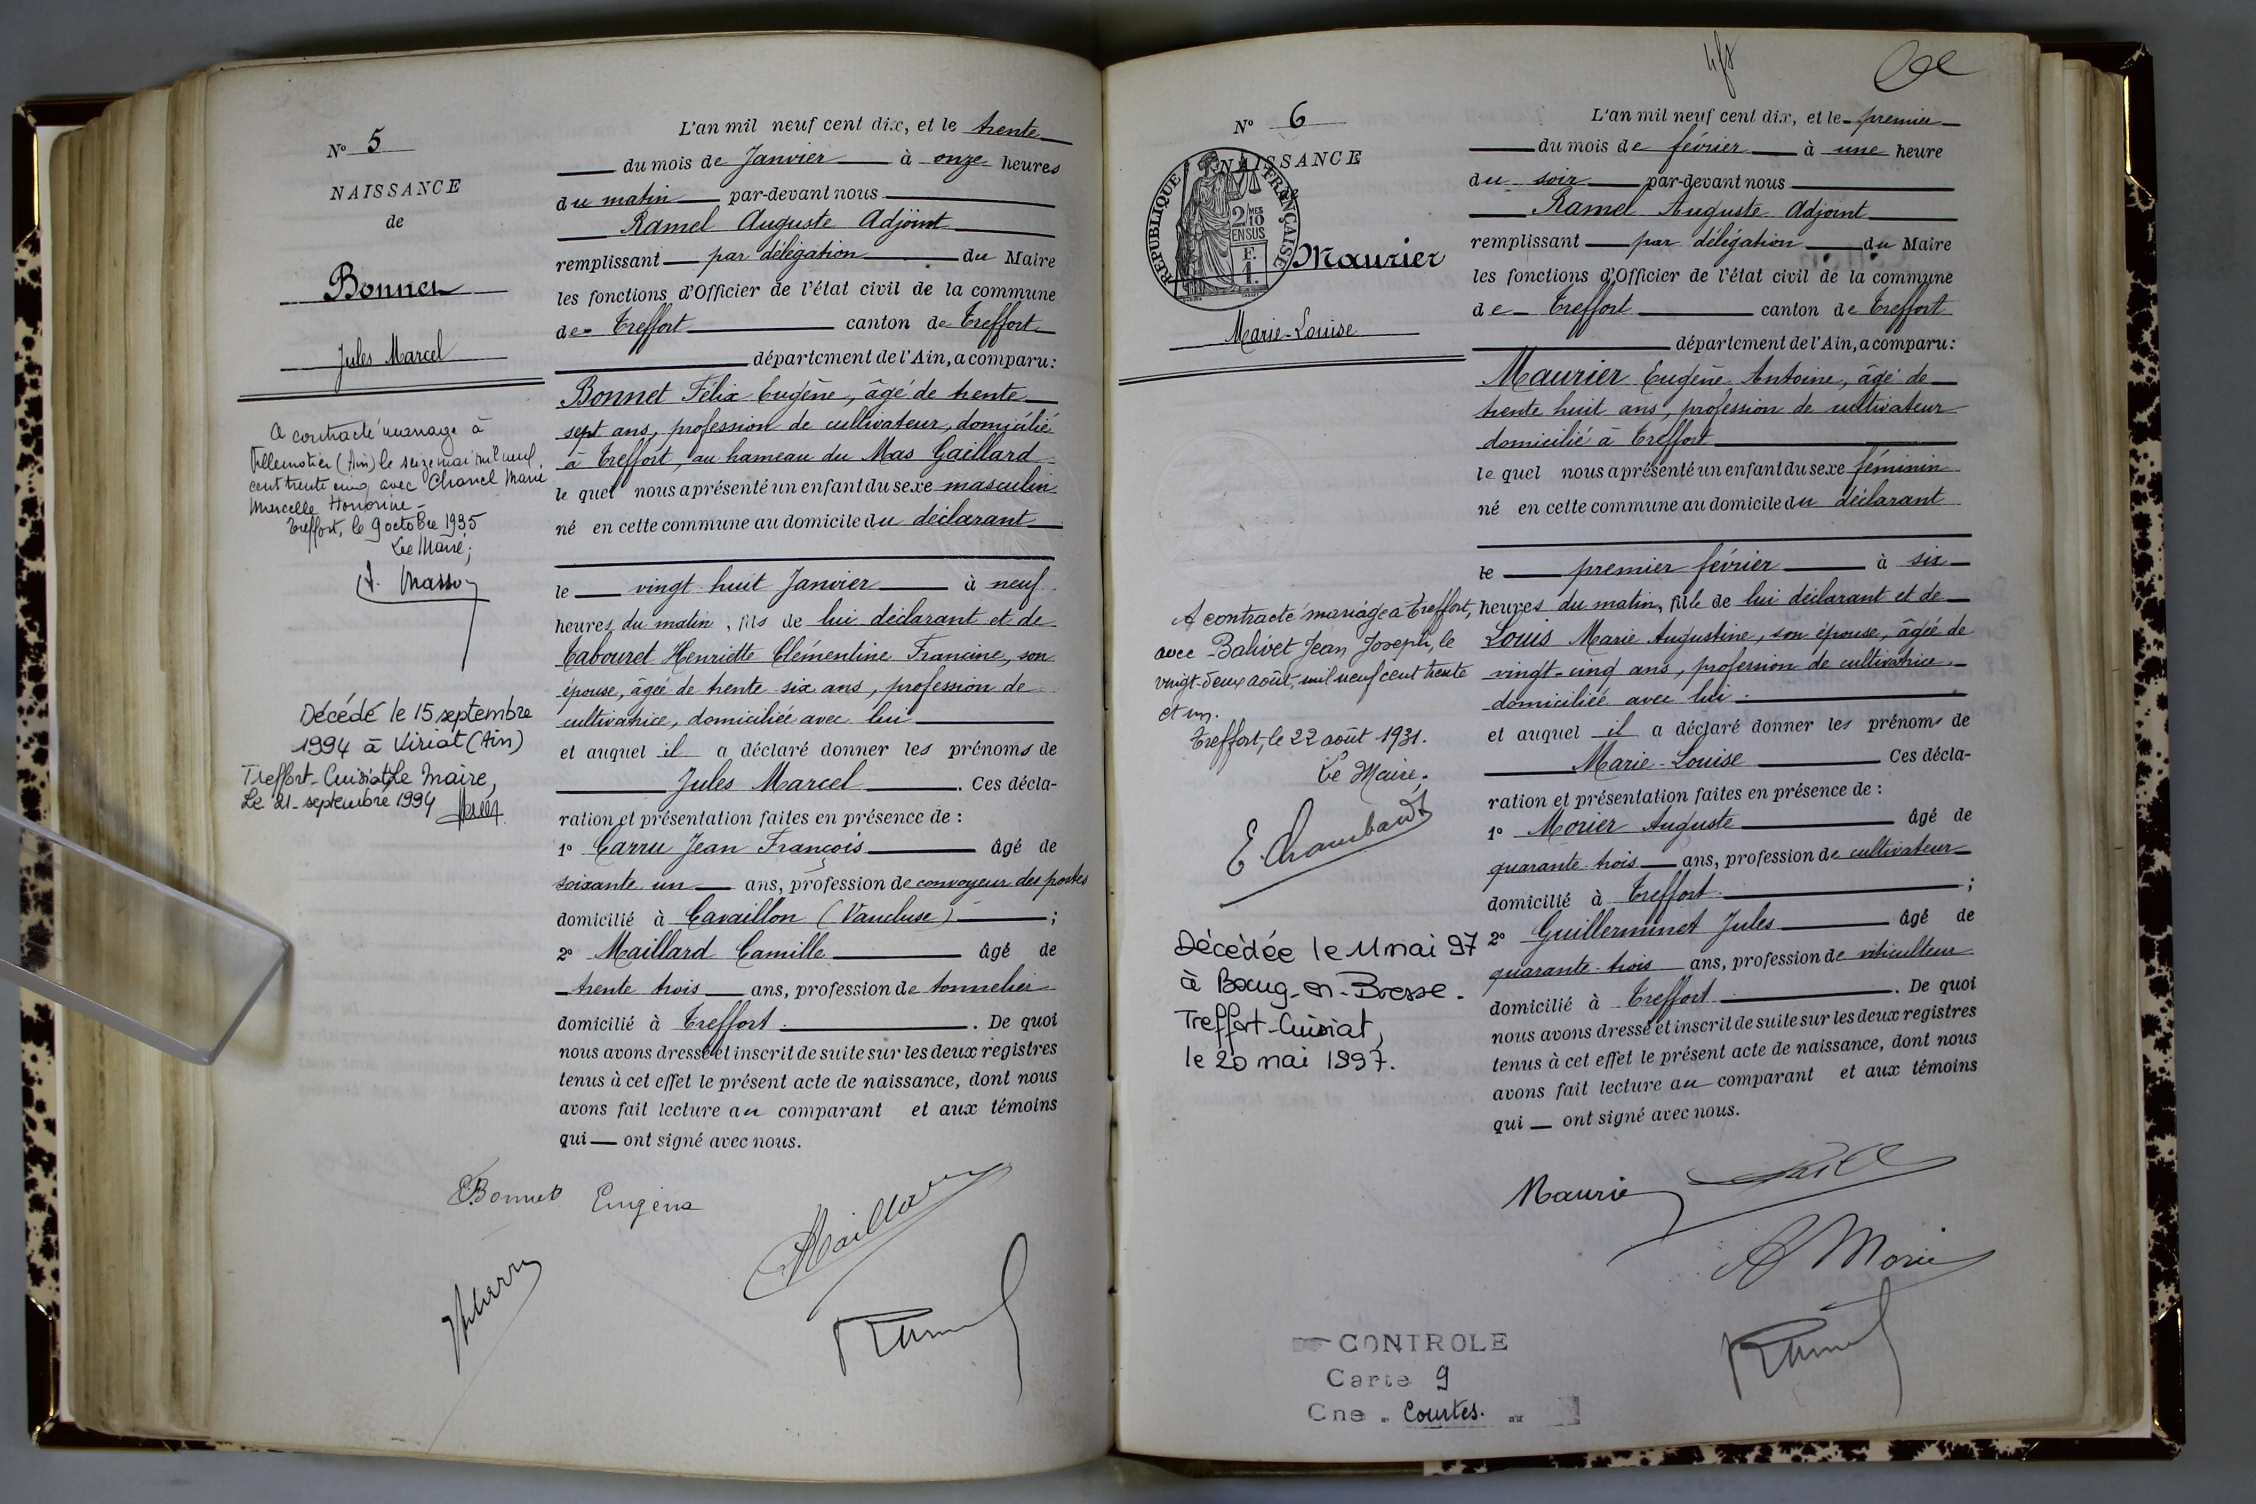 N° 5
NAISSANCE
de
Bonnet
Jules Marcel
A contracté mariage à
Villemotier (Ain) le seize mai mil neuf
cent trente cinq avec Chanel Marie
Marcelle Honorine -
Treffort, le 9 octobre 1935
Le Maire,
Décédé le 15 septembre
1994 à Viriat (Ain)
Treffort-Cuisiat, Le Maire,
Le 21 septembre 1994
L'an mil neuf cent dix, et le trente
du mois de Janvier à onze heures
du matin par-devant nous
Ramel Auguste Adjoint
remplissant par délégation du Maire
les fonctions d'Officier de l'état civil de la commune
de Treffort canton de Treffort
département de l'Ain, a comparu:
Bonnet Félix Eugène, âgé de trente
sept ans, profession de cultivateur, domicilié
à Treffort, au hameau du Mas Gaillard
le quel nous a présenté un enfant du sexe masculin
né en cette commune au domicile du déclarant
le vingt huit Janvier à neuf
heures du matin, fils de lui déclarant et de
Cabouret Henriette Clémentine Francine, son
épouse, âgée de trente six ans, profession de
cultivatrice, domiciliée avec lui
et auquel il a déclaré donner les prénoms de
Jules Marcel. Ces décla-
ration et présentation faites en présence de :
1° Carru Jean François âgé de
soixante un ans, profession de convoyeur des postes
domicilié à Cavaillon (Vaucluse) ;
2° Maillard Camille âgé de
trente trois ans, profession de tonnelier
domicilié à Treffort. De quoi
nous avons dressé et inscrit de suite sur les deux registres
tenus à cet effet le présent acte de naissance, dont nous
avons fait lecture au comparant et aux témoins
qui ont signé avec nous.
Bonnet Eugène
Maillard
Ramel
N° 6
NAISSANCE
REPUBLIQUE FRANÇAISE
2/10
MES
EN SUS
F.
1.
Maurier
Marie-Louise
A contracté mariage à Treffort,
avec Balivet Jean Joseph, le
vingt-deux août, mil neuf cent trente
et un.
Treffort, le 22 août 1931.
Le Maire.
E. Chambard
Décédée le 11 mai 97
à Bourg-en-Bresse.
Treffort-Cuisiat,
le 20 mai 1997.
L'an mil neuf cent dix, et le premier
du mois de février à une heure
du soir par-devant nous
Ramel Auguste Adjoint
remplissant par délégation du Maire
les fonctions d'Officier de l'état civil de la commune
de Treffort canton de Treffort
département de l'Ain, a comparu:
Maurier Eugène Antoine, âgé de
trente huit ans, profession de cultivateur
domicilié à Treffort
le quel nous a présenté un enfant du sexe féminin
né en cette commune au domicile du déclarant
le premier février à six
heures du matin, fille de lui déclarant et de
Louis Marie Augustine, son épouse, âgée de
vingt-cinq ans, profession de cultivatrice,
domiciliée avec lui.
et auquel il a déclaré donner les prénoms de
Marie-Louise Ces décla-
ration et présentation faites en présence de :
1° Morier Auguste âgé de
quarante trois ans, profession de cultivateur
domicilié à Treffort ;
2° Guillerminet Jules âgé de
quarante-trois ans, profession de viticulteur
domicilié à Treffort. De quoi
nous avons dressé et inscrit de suite sur les deux registres
tenus à cet effet le présent acte de naissance, dont nous
avons fait lecture au comparant et aux témoins
qui ont signé avec nous.
Maurier
A Morier
Ramel
CONTROLE
Carte 9
Cne. Courtes.